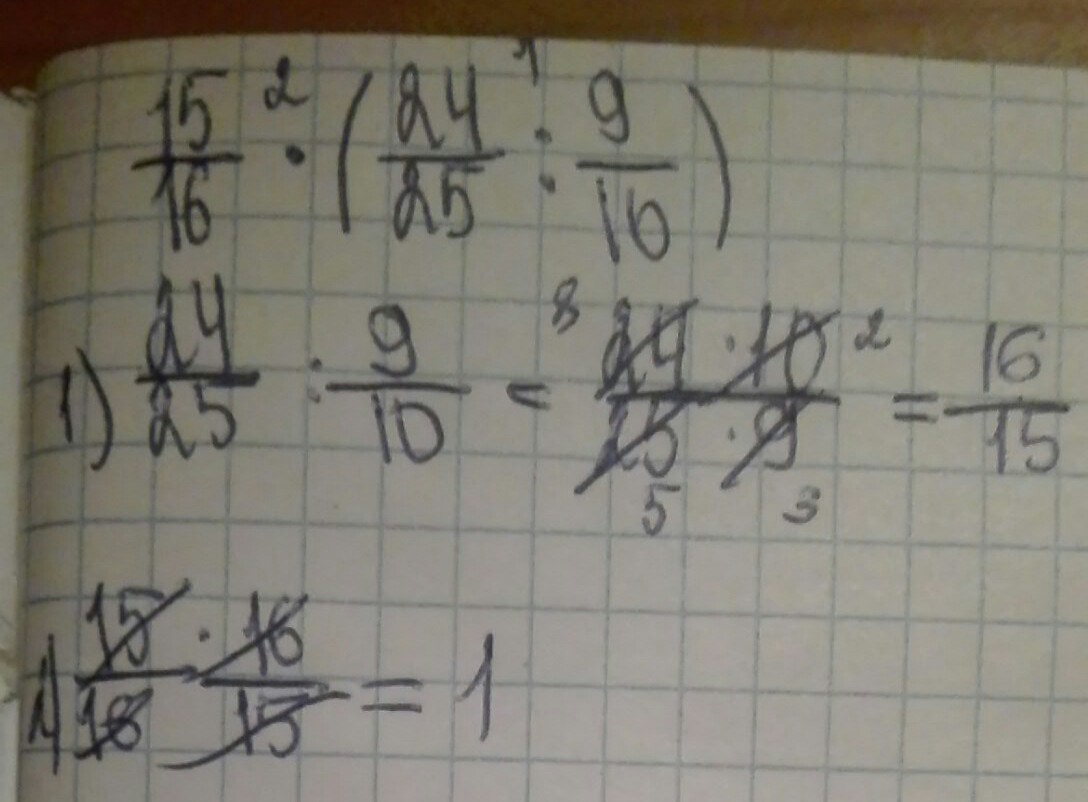 15/16 ·² (24/25 :¹ 9/10)
1) 24/25 : 9/10 = 24 · 10 / 25 · 9 = 16/15
8 2 5 3
2) 15/16 · 16/15 = 1